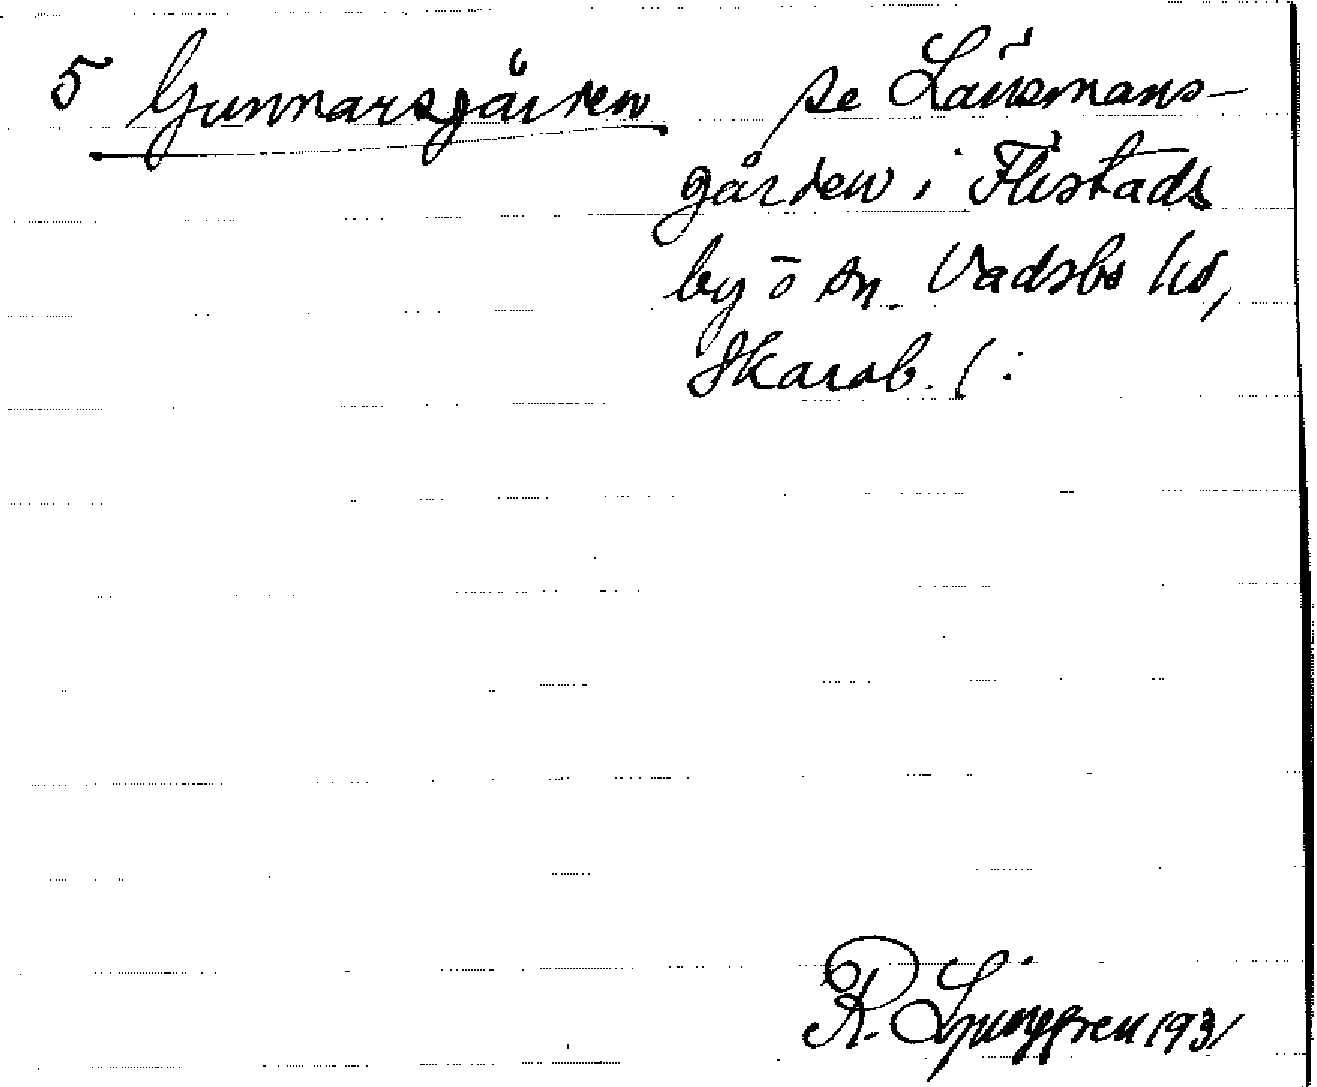 5 Gunnarsgården se Länsmans-
gården i Flistads
by o sn. Vadsbo hd,
Skarab. l:
R. Ljunggren 1931